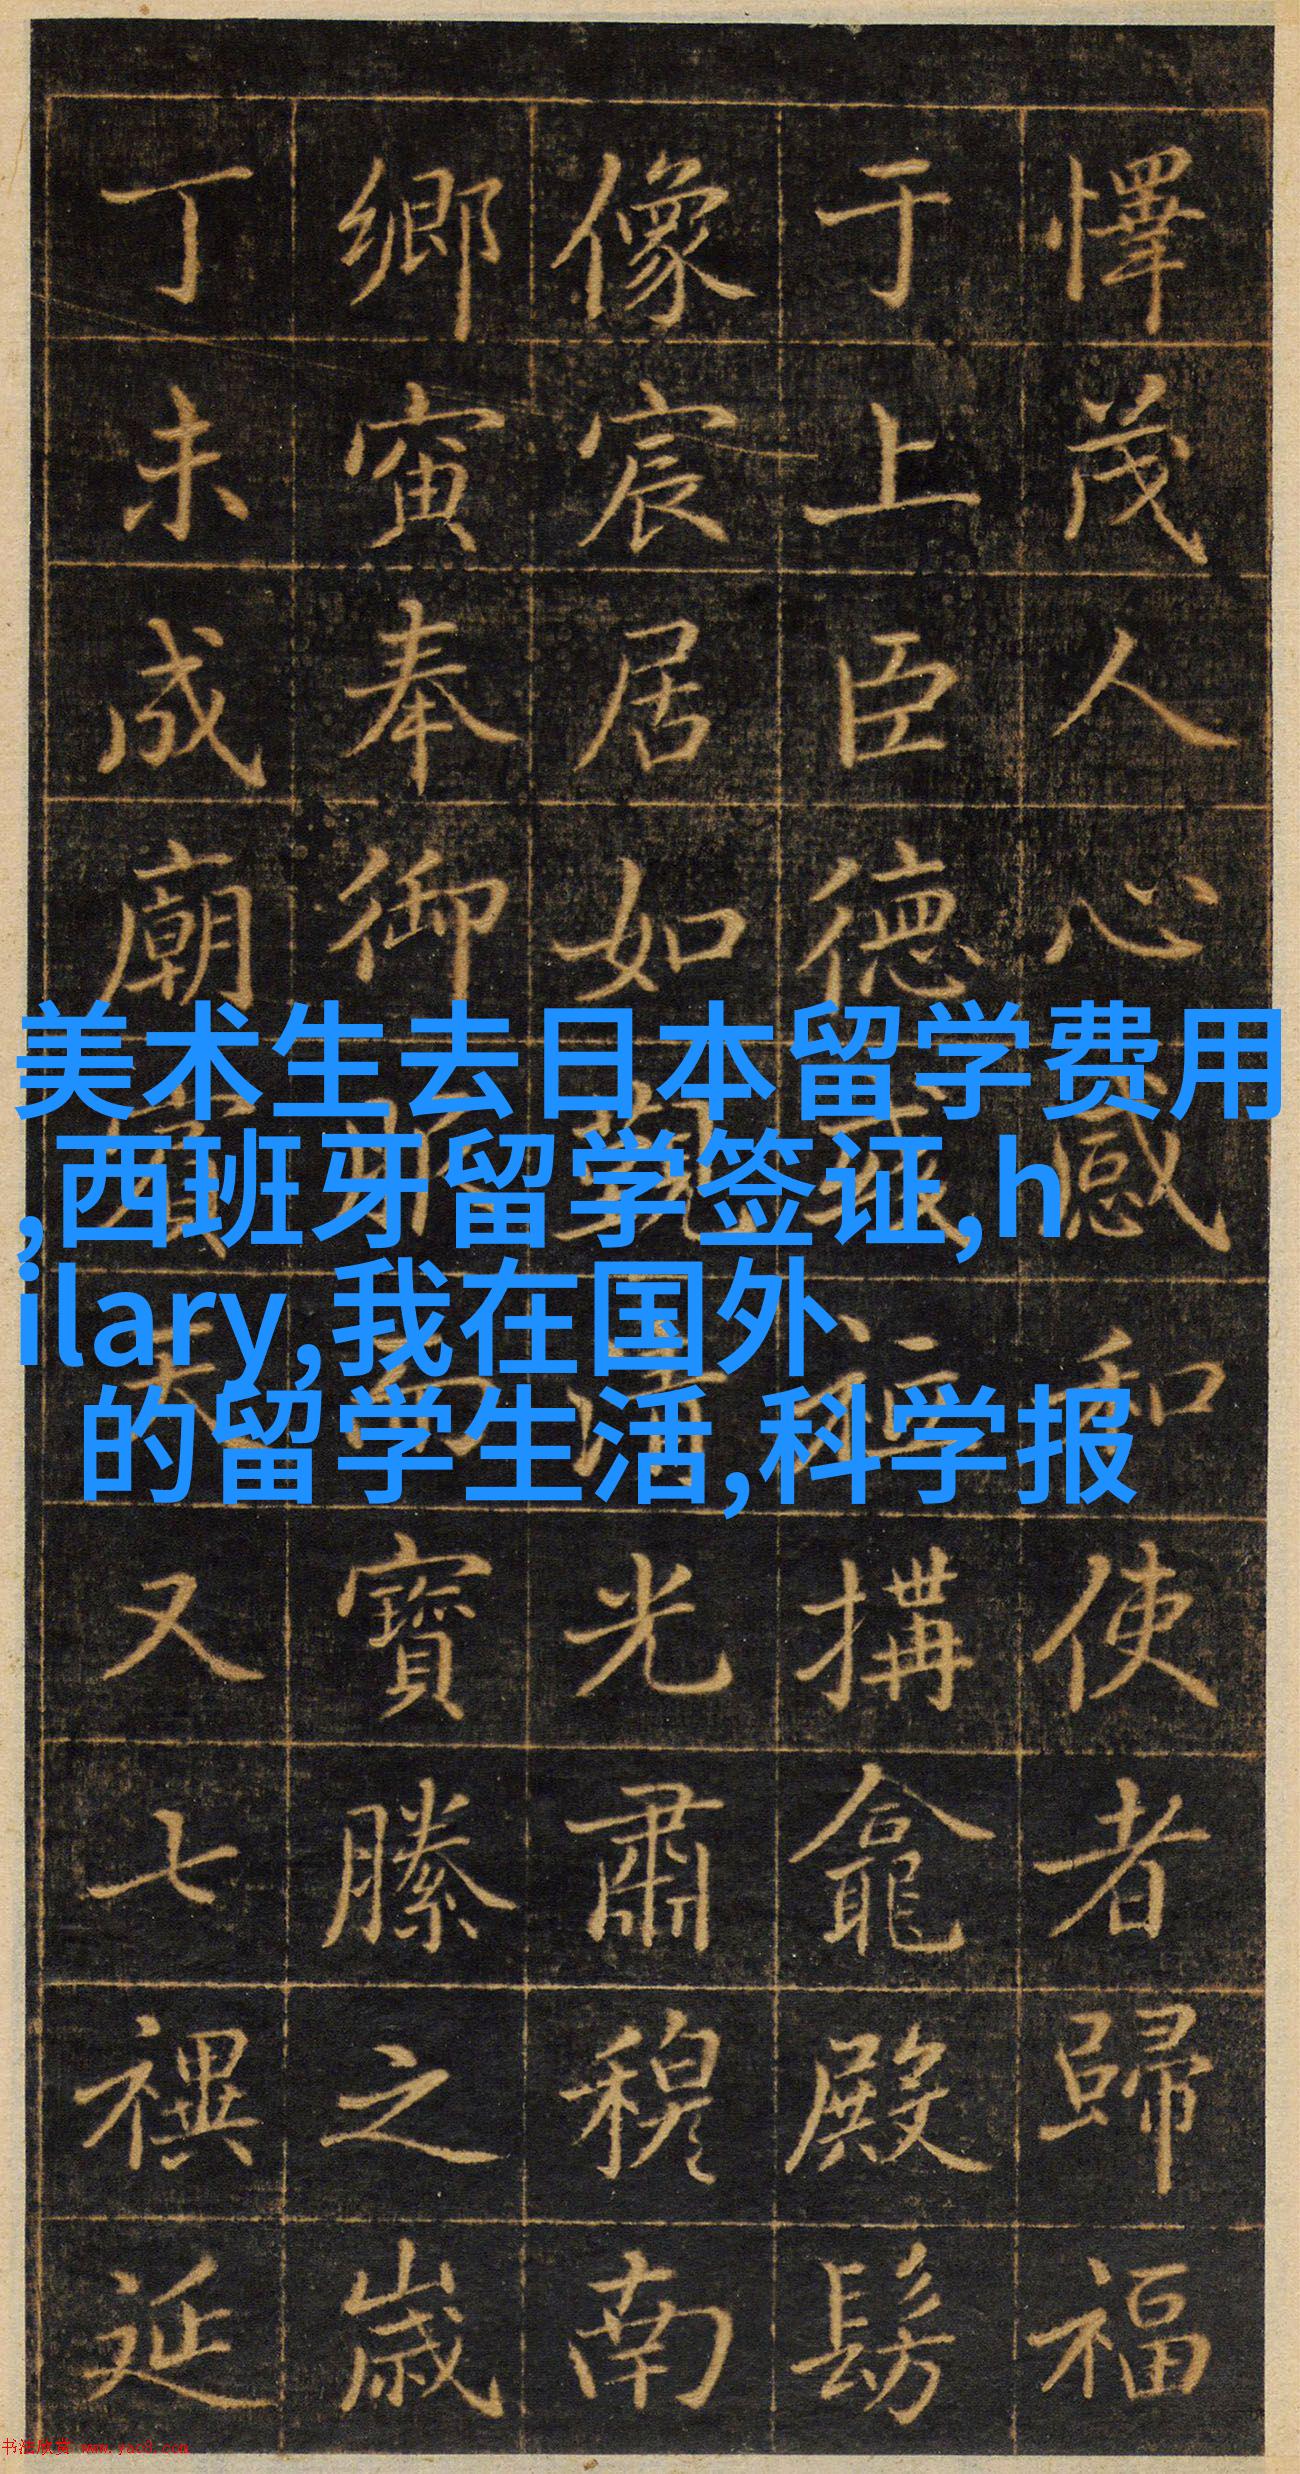 懌茂人心感和使者歸福
于上臣德搆龕殿髣
像宸居如光肅穆南
鄉寅奉御寶縢之歲
丁未成廟天又七禩延
美术生去日本留学费用
,西班牙留学签证,h
ilary,我在国外
的留学生活,科学报
书法欣赏 www.yac8.com